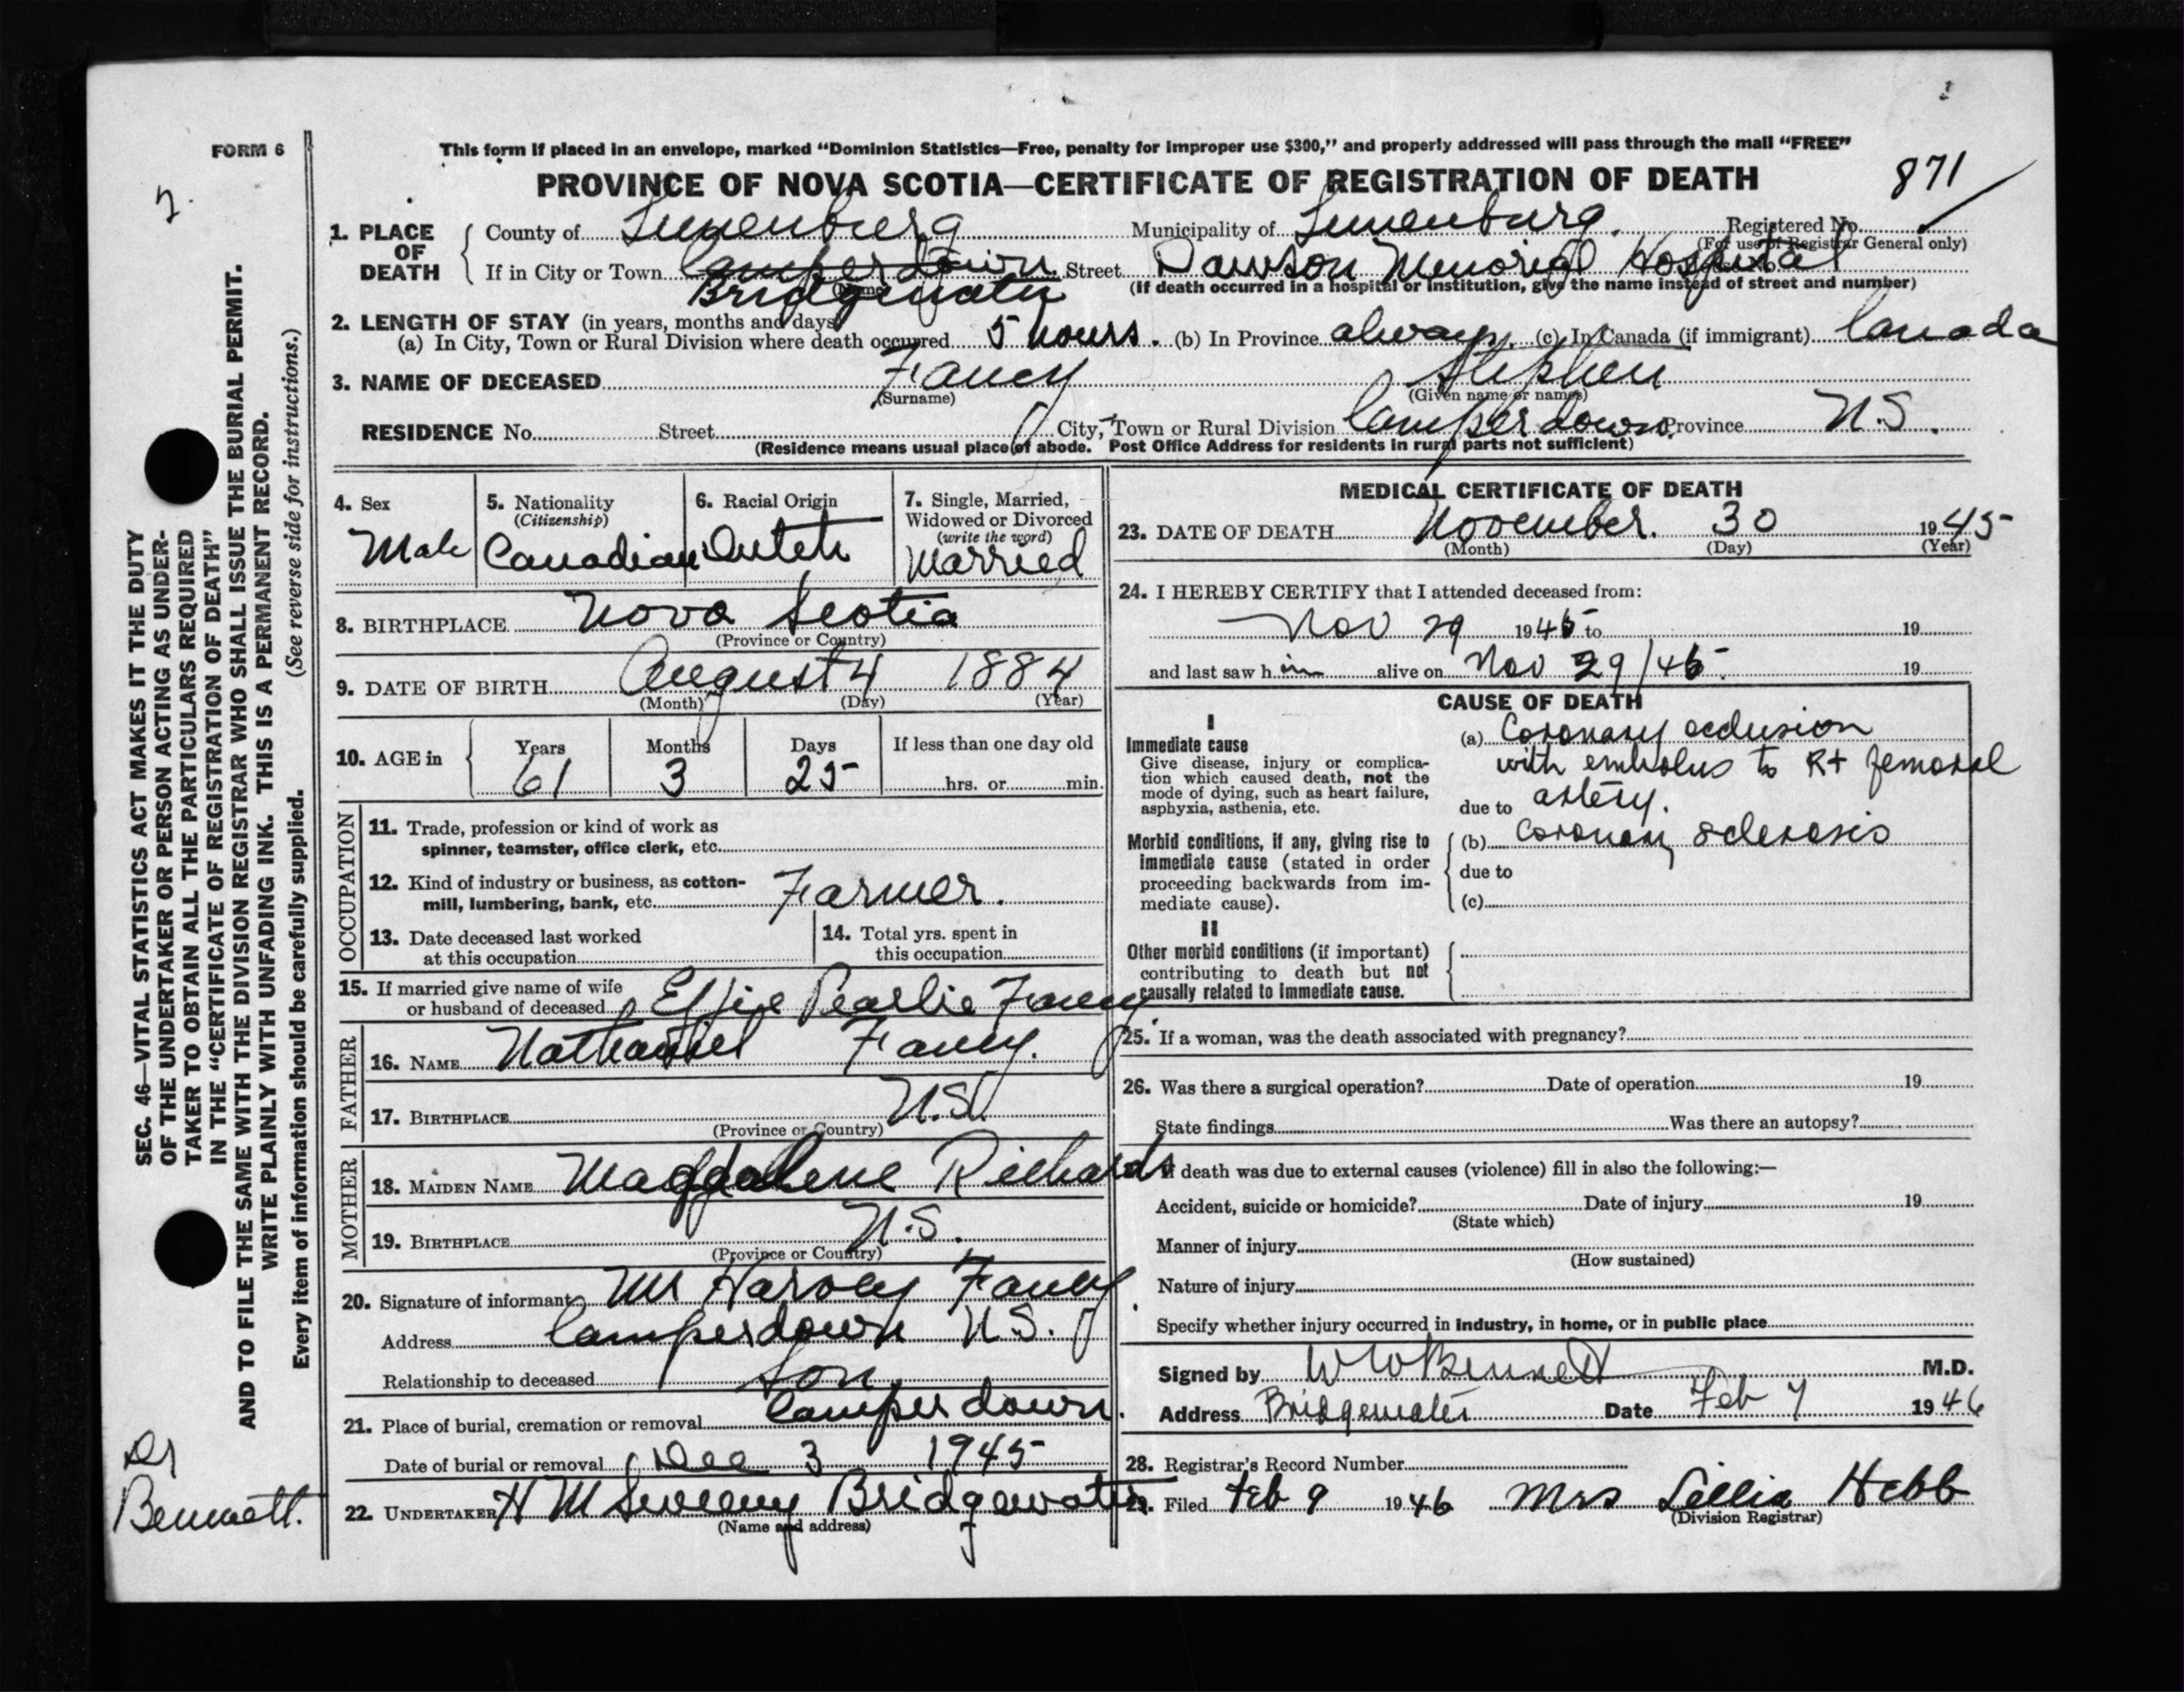 FORM 6
2.
This form if placed in an envelope, marked “Dominion Statistics—Free, penalty for improper use $300,” and properly addressed will pass through the mail “FREE”
PROVINCE OF NOVA SCOTIA—CERTIFICATE OF REGISTRATION OF DEATH
871
1. PLACE OF DEATH County of Lunenburg Municipality of Lunenburg. Registered No.
(For use of Registrar General only)
If in City or Town Camperdown Street Dawson Memorial Hospital
Bridgewater (Name) (If death occurred in a hospital or institution, give the name instead of street and number)
2. LENGTH OF STAY (in years, months and days)
(a) In City, Town or Rural Division where death occurred 5 hours. (b) In Province always. (c) In Canada (if immigrant) Canada
3. NAME OF DECEASED Fancy Stephen
(Surname) (Given name or names)
RESIDENCE No. Street City, Town or Rural Division Camperdown Province N.S.
(Residence means usual place of abode. Post Office Address for residents in rural parts not sufficient)
4. Sex
Male
5. Nationality
(Citizenship)
Canadian
6. Racial Origin
Dutch
7. Single, Married,
Widowed or Divorced
(write the word)
Married
8. BIRTHPLACE Nova Scotia
(Province or Country)
9. DATE OF BIRTH August 4 1884
(Month) (Day) (Year)
10. AGE in Years Months Days If less than one day old
61 3 25 hrs. or min.
OCCUPATION
11. Trade, profession or kind of work as
spinner, teamster, office clerk, etc.
12. Kind of industry or business, as cotton-
mill, lumbering, bank, etc. Farmer.
13. Date deceased last worked
at this occupation
14. Total yrs. spent in
this occupation
15. If married give name of wife
or husband of deceased Effie Pearlie Fancy
FATHER
16. NAME Nathaniel Fancy.
17. BIRTHPLACE N.S.
(Province or Country)
MOTHER
18. MAIDEN NAME Magdalene Richards
19. BIRTHPLACE N.S.
(Province or Country)
20. Signature of informant Mr Harvey Fancy.
Address Camperdown N.S.
Relationship to deceased Son
21. Place of burial, cremation or removal Camperdown.
Date of burial or removal Dec 3 1945
22. UNDERTAKER H M Sweeny Bridgewater
(Name and address)
MEDICAL CERTIFICATE OF DEATH
23. DATE OF DEATH November. 30 1945
(Month) (Day) (Year)
24. I HEREBY CERTIFY that I attended deceased from:
Nov 29 1945 to 19
and last saw him alive on Nov 29/45. 19
CAUSE OF DEATH
I
Immediate cause
Give disease, injury or complica-
tion which caused death, not the
mode of dying, such as heart failure,
asphyxia, asthenia, etc.
(a) Coronary occlusion
with embolus to Rt femoral
due to artery.
Morbid conditions, if any, giving rise to
immediate cause (stated in order
proceeding backwards from im-
mediate cause).
(b) Coronary sclerosis
due to
(c)
II
Other morbid conditions (if important)
contributing to death but not
causally related to immediate cause.
25. If a woman, was the death associated with pregnancy?
26. Was there a surgical operation? Date of operation 19
State findings Was there an autopsy?
If death was due to external causes (violence) fill in also the following:—
Accident, suicide or homicide? Date of injury 19
(State which)
Manner of injury
(How sustained)
Nature of injury
Specify whether injury occurred in industry, in home, or in public place
Signed by W W Bennett M.D.
Address Bridgewater Date Feb 7 1946
28. Registrar's Record Number
29. Filed Feb 9 1946 Mrs Lillia Hebb
(Division Registrar)
SEC. 46—VITAL STATISTICS ACT MAKES IT THE DUTY
OF THE UNDERTAKER OR PERSON ACTING AS UNDER-
TAKER TO OBTAIN ALL THE PARTICULARS REQUIRED
IN THE “CERTIFICATE OF REGISTRATION OF DEATH”
AND TO FILE THE SAME WITH THE DIVISION REGISTRAR WHO SHALL ISSUE THE BURIAL PERMIT.
WRITE PLAINLY WITH UNFADING INK. THIS IS A PERMANENT RECORD.
Every item of information should be carefully supplied. (See reverse side for instructions.)
Dr
Bennett.